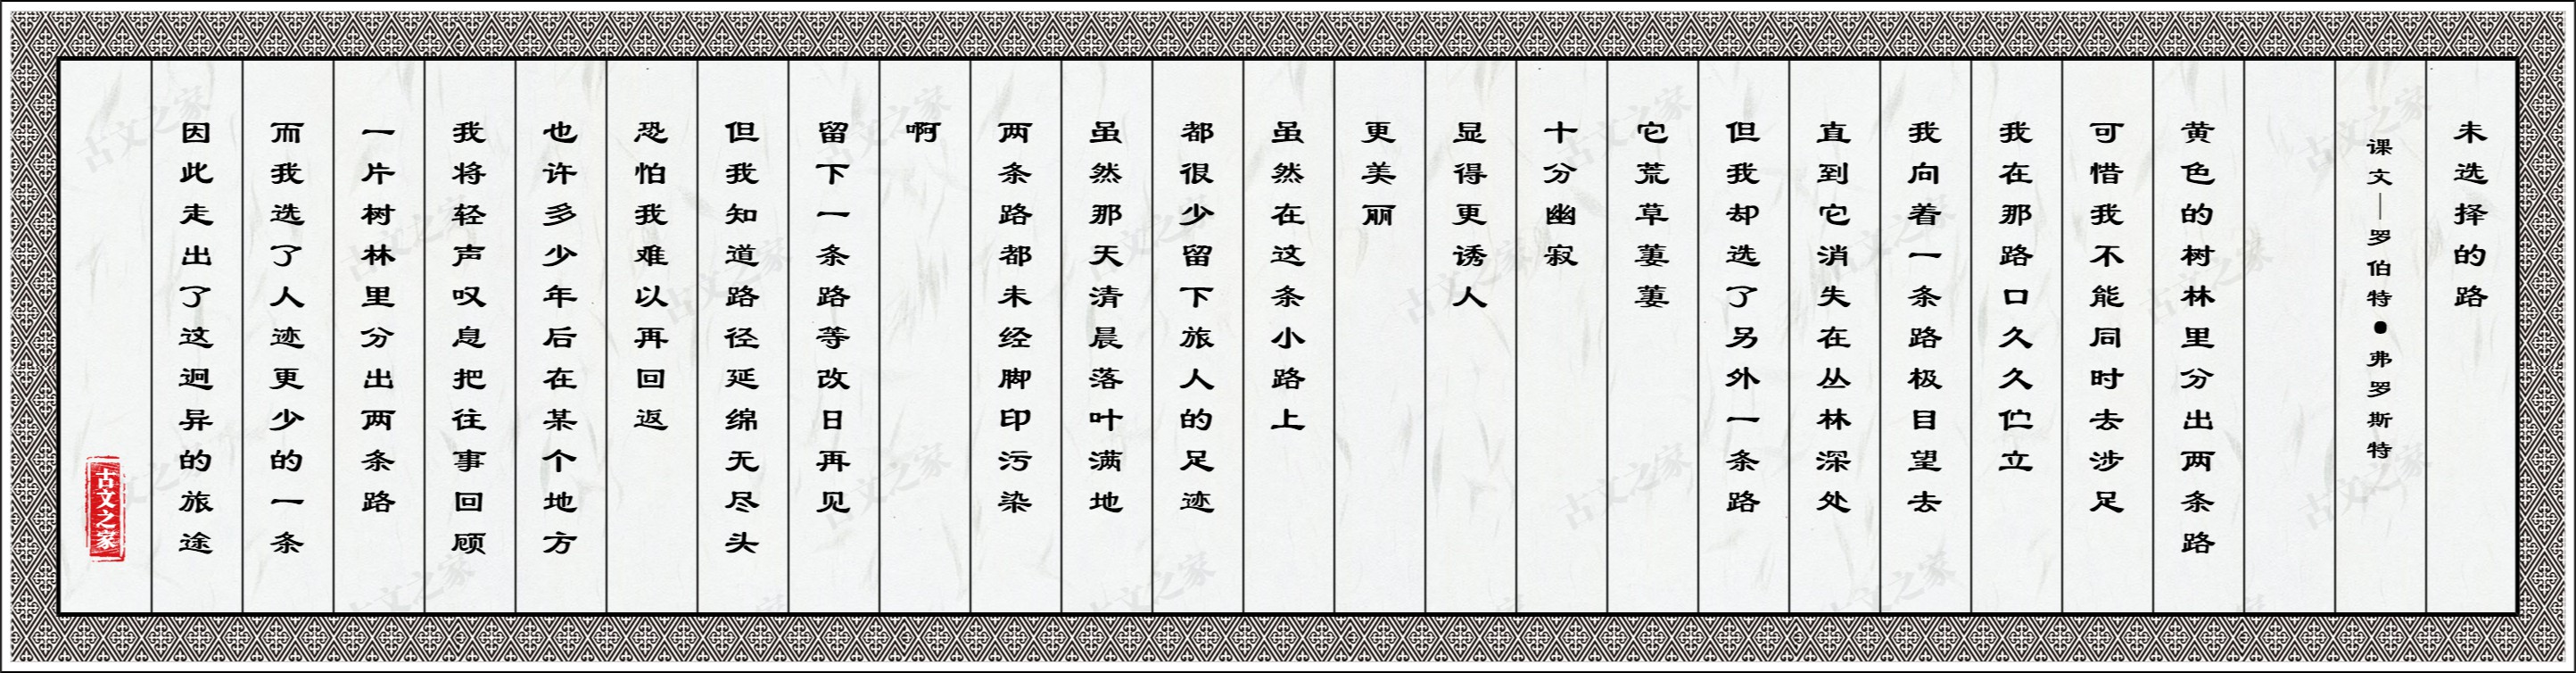 未选择的路
课文—罗伯特●弗罗斯特
黄色的树林里分出两条路
可惜我不能同时去涉足
我在那路口久久伫立
我向着一条路极目望去
直到它消失在丛林深处
但我却选了另外一条路
它荒草萋萋
十分幽寂
显得更诱人
更美丽
虽然在这条小路上
都很少留下旅人的足迹
虽然那天清晨落叶满地
两条路都未经脚印污染
啊
留下一条路等改日再见
但我知道路径延绵无尽头
恐怕我难以再回返
也许多少年后在某个地方
我将轻声叹息把往事回顾
一片树林里分出两条路
而我选了人迹更少的一条
因此走出了这迥异的旅途
古文之家